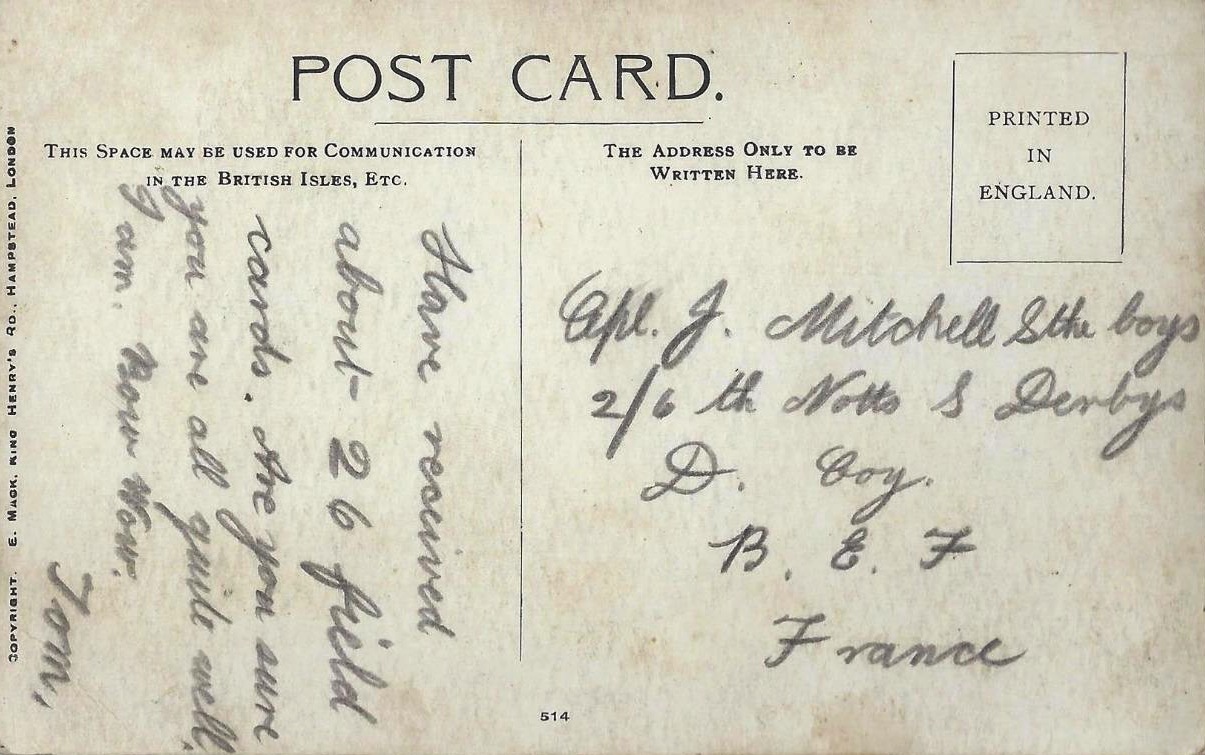 POST CARD.
THIS SPACE MAY BE USED FOR COMMUNICATION
IN THE BRITISH ISLES, ETC.
THE ADDRESS ONLY TO BE
WRITTEN HERE.
PRINTED
IN
ENGLAND.
Have received
about 26 field
cards. Are you sure
you are all quite well.
I am. Bow Wow.
Tom.
Cpl. J. Mitchell & the boys
2/6 th Notts & Derbys
D. Coy.
B. E. F
France
COPYRIGHT. E. MACK, KING HENRY'S RD., HAMPSTEAD, LONDON
514